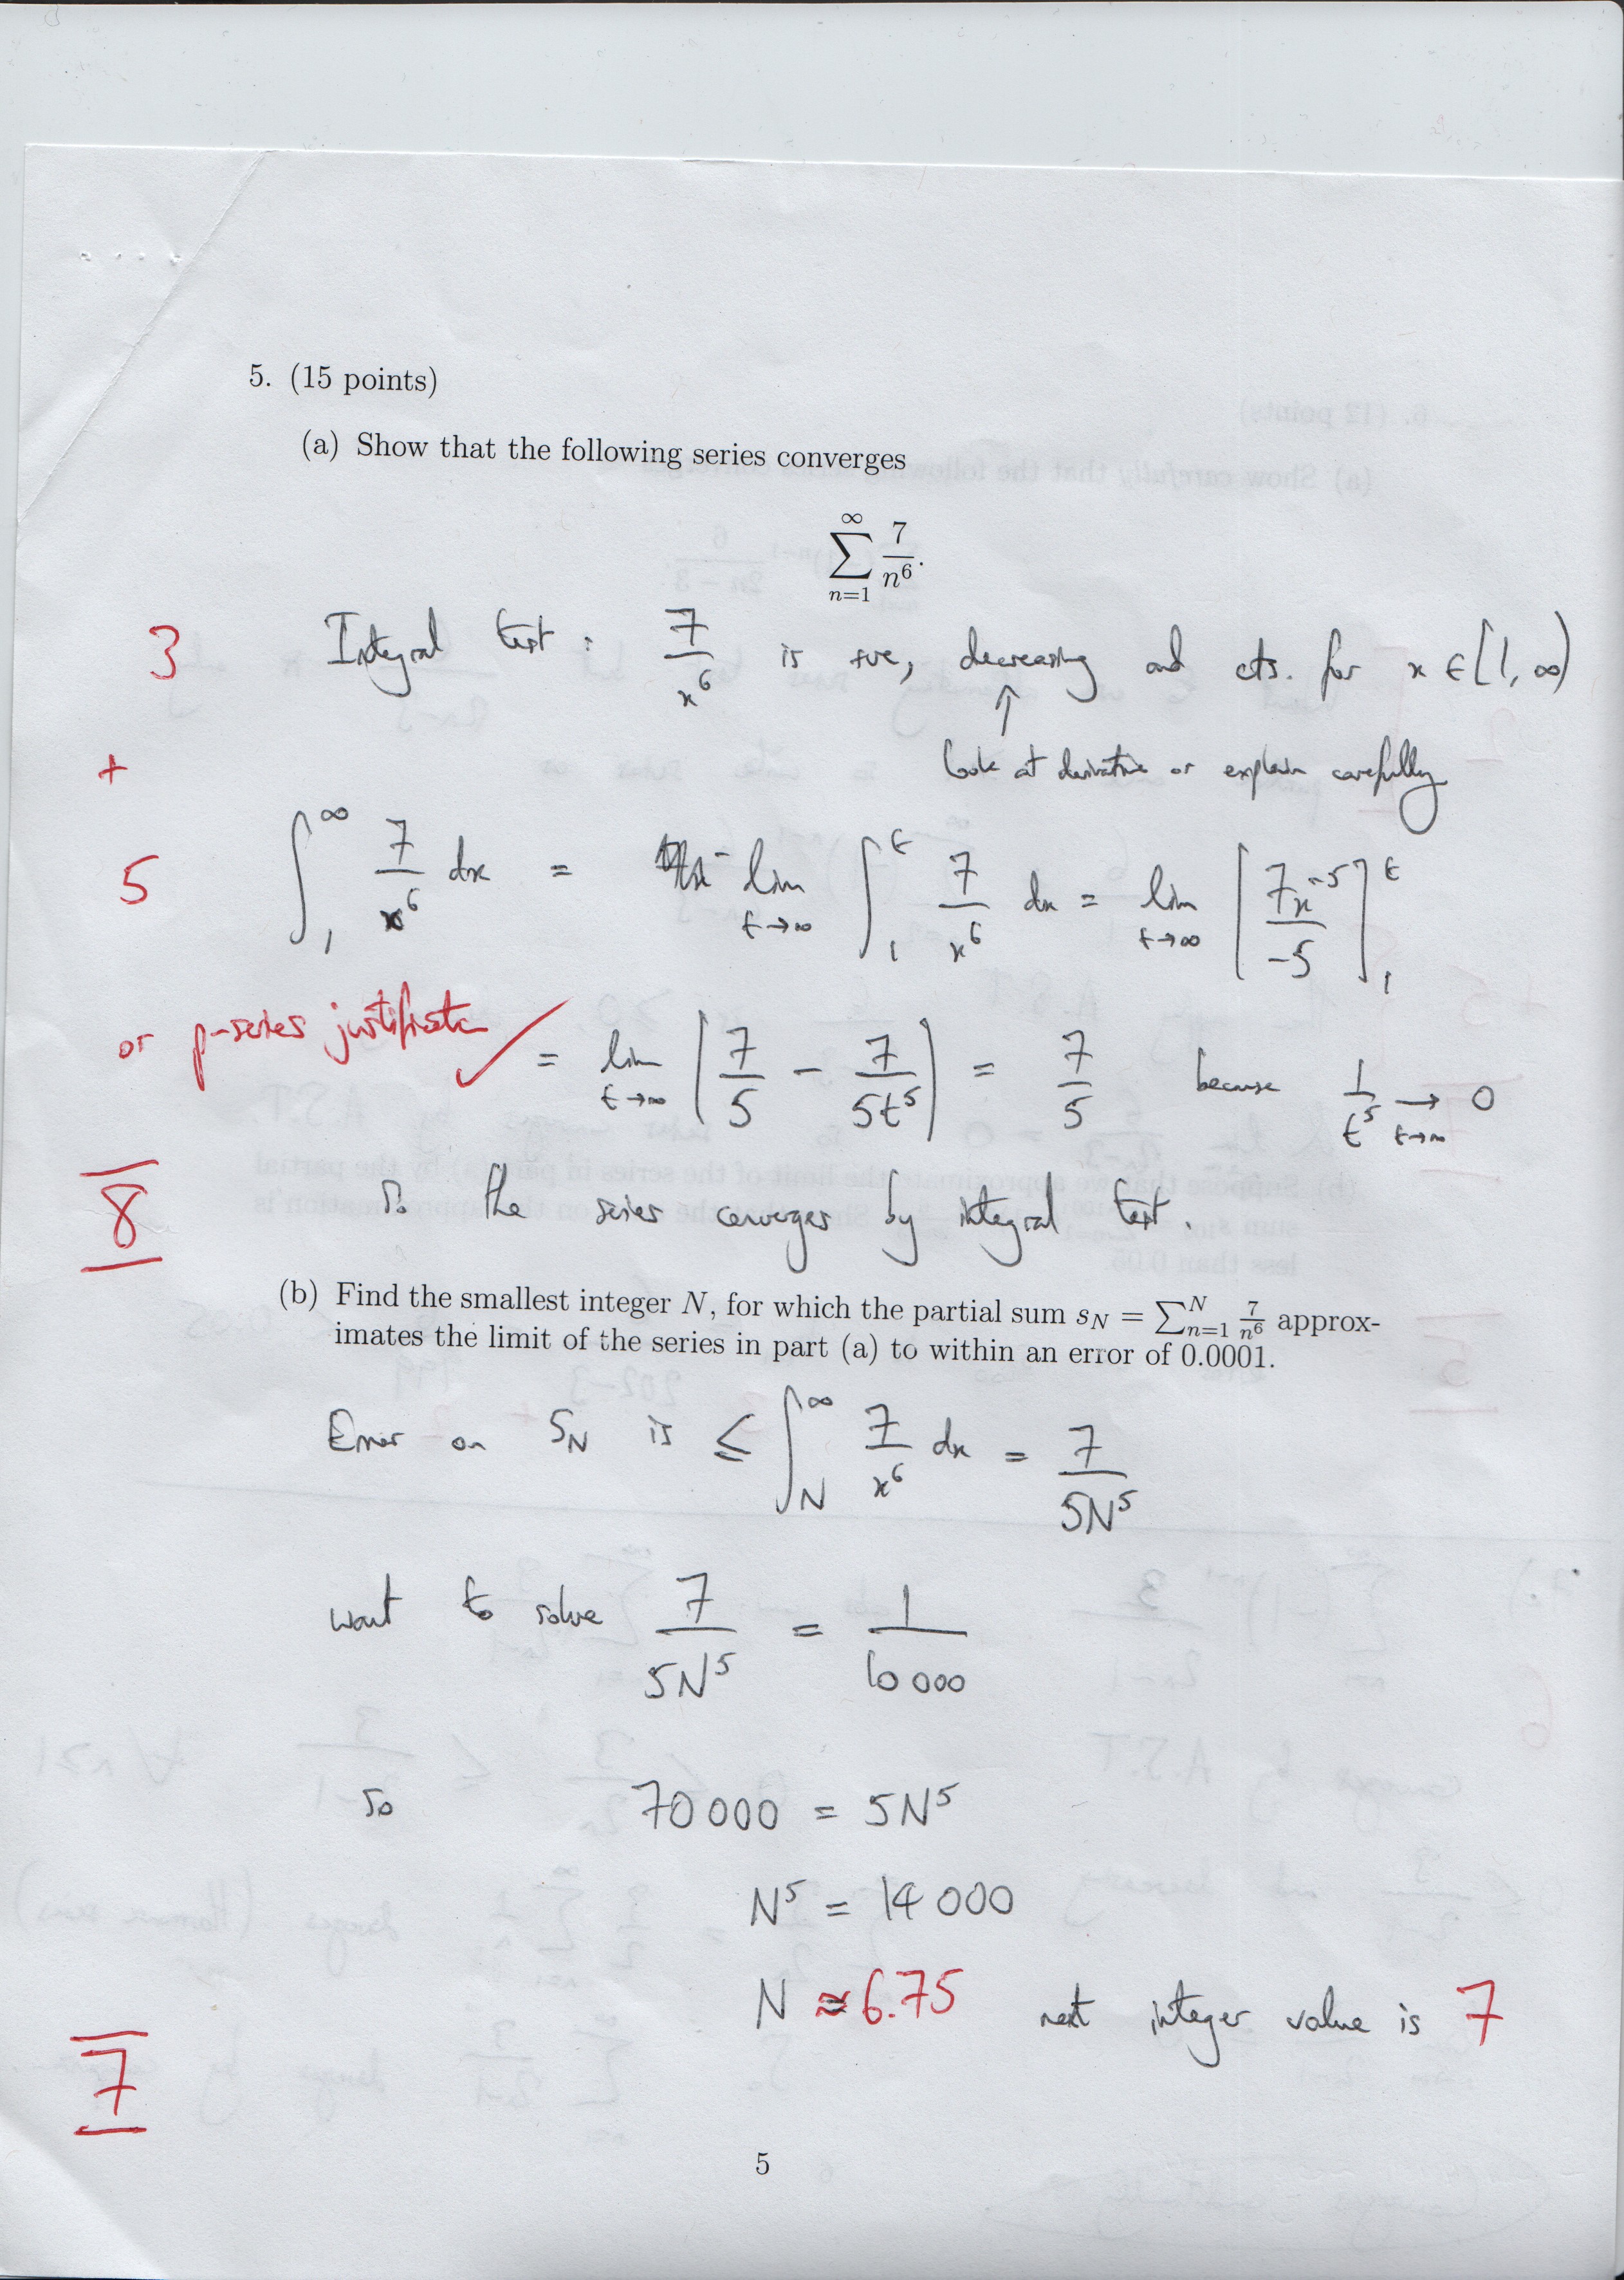 5. (15 points)
(a) Show that the following series converges
∞ Σ n=1 7/n⁶.
3 Integral test : 7/x⁶ is +ve, decreasing and cts. for x ∈ [1, ∞)
↑
+ look at derivative or explain carefully
5 ∫₁^∞ 7/x⁶ dx = lim t→∞ ∫₁^t 7/x⁶ dx = lim t→∞ [7x⁻⁵/-5]₁^t
or p-series justification ✓ = lim t→∞ (7/5 - 7/5t⁵) = 7/5 because 1/t⁵ → 0 t→∞
8 So the series converges by integral test.
(b) Find the smallest integer N, for which the partial sum s_N = Σ_{n=1}^N 7/n⁶ approx-
imates the limit of the series in part (a) to within an error of 0.0001.
Error on S_N is ≤ ∫_N^∞ 7/x⁶ dx = 7/5N⁵
want to solve 7/5N⁵ = 1/10 000
So 70 000 = 5N⁵
N⁵ = 14 000
N ≈ 6.75 next integer value is 7
7
5